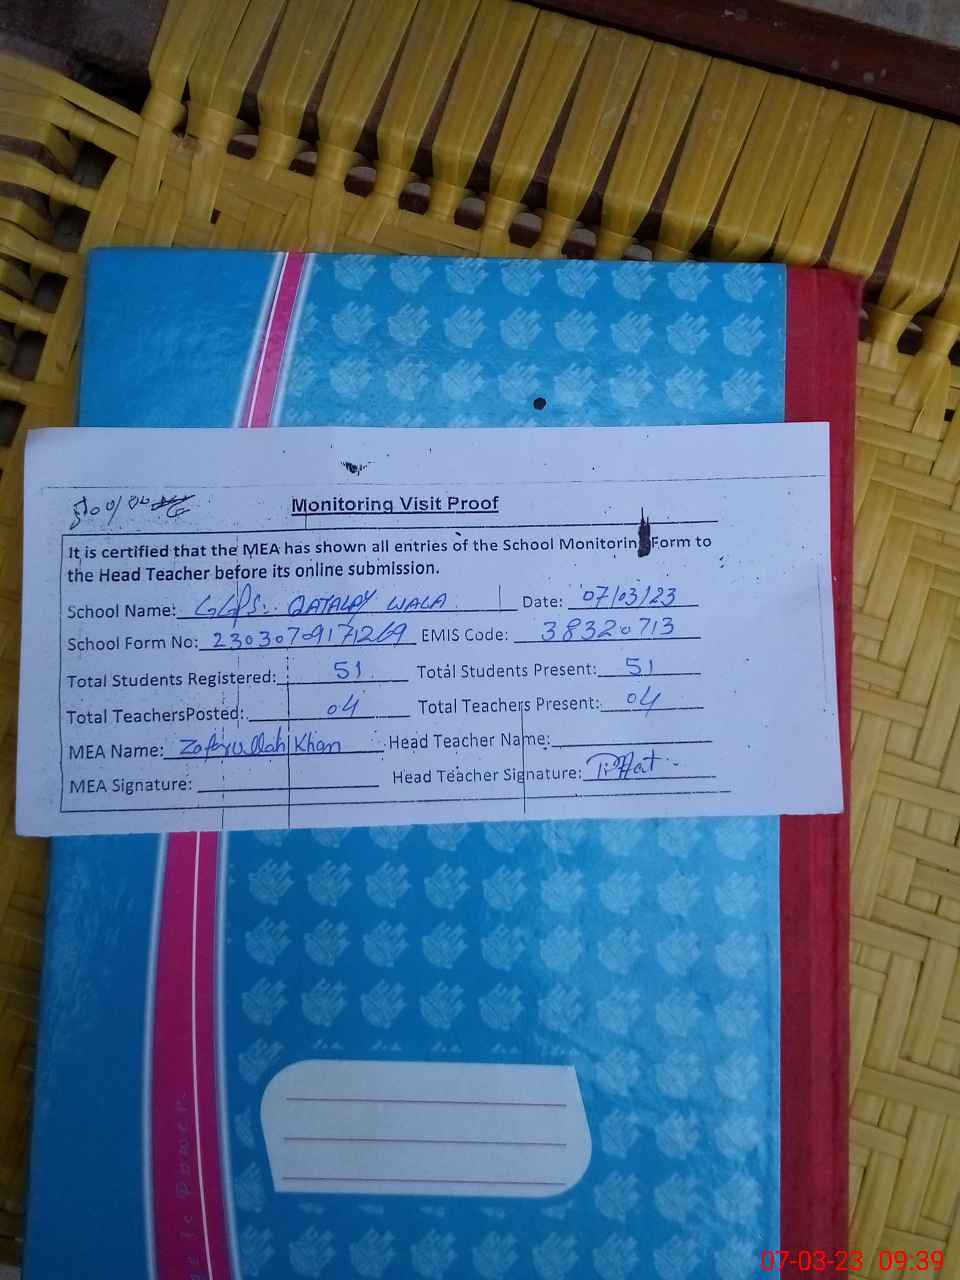 Monitoring Visit Proof
It is certified that the MEA has shown all entries of the School Monitoring Form to
the Head Teacher before its online submission.
School Name: GGPS. QATALAY WALA Date: 07/03/23
School Form No: 23030709171269 EMIS Code: 38320713
Total Students Registered: 51 Total Students Present: 51
Total TeachersPosted: 04 Total Teachers Present: 04
MEA Name: Zafarullah Khan Head Teacher Name:
MEA Signature: Head Teacher Signature:
07-03-23 09:39